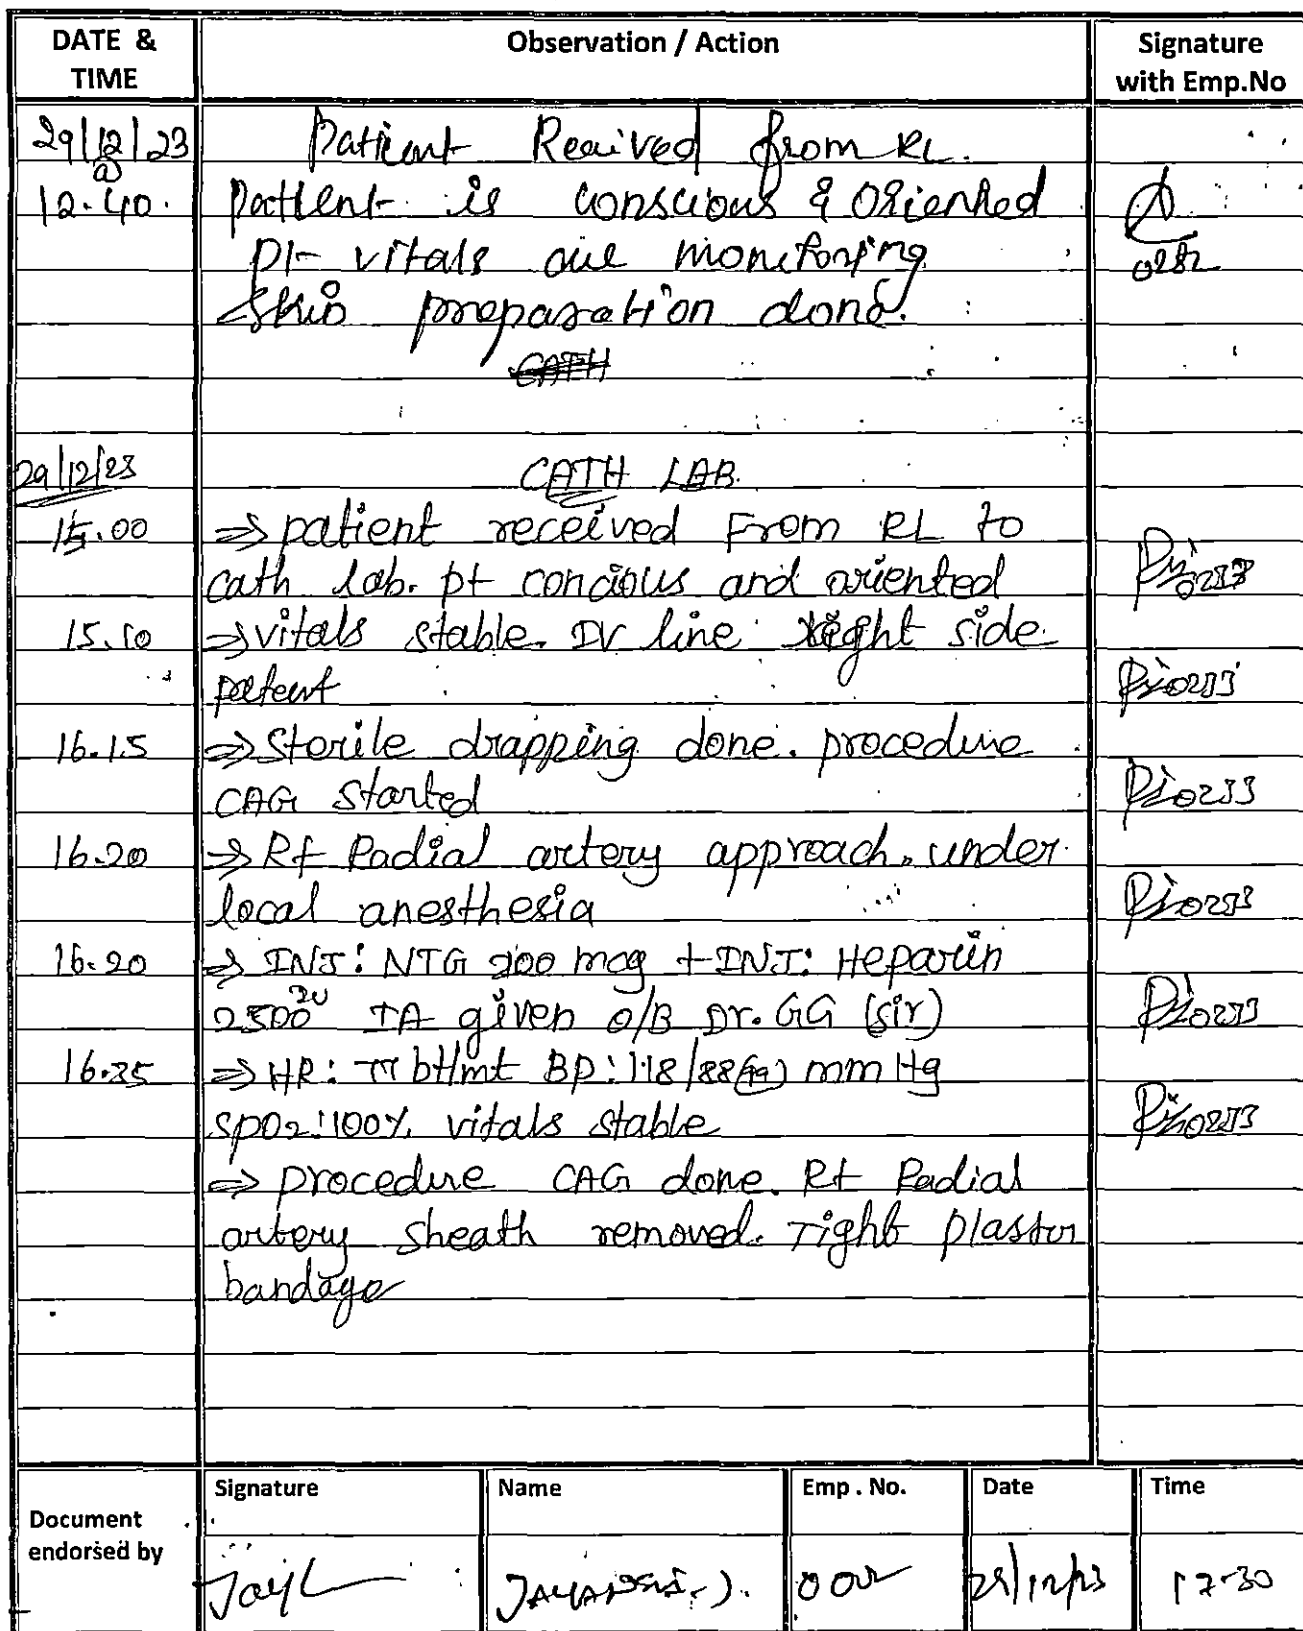 DATE & TIME Observation / Action Signature with Emp.No
29/12/23 Patient Received from RL.
@
12.40. patient is conscious & Oriented
pt vitals are monitoring 0282
Skin preparation done.
29/12/23 CATH LAB.
15.00 ⇒ patient received From RL to
cath lab. pt concious and oriented
15.10 ⇒ vitals stable. IV line right side
patent
16.15 ⇒ Sterile drapping done. procedure
CAG started
16.20 ⇒ Rt Radial artery approach, under
local anesthesia
16.20 ⇒ INJ: NTG 200 mcg + INJ: Heparin
2500 IU IA given O/B Dr. GG (sir)
16.25 ⇒ HR: 77 bt/mt BP: 118/88 (99) mmHg
SPO2: 100% vitals stable
⇒ procedure CAG done. Rt Radial
artery sheath removed. Tight plaster
bandage
Document endorsed by Signature Name Emp . No. Date Time
/12/23 17-30